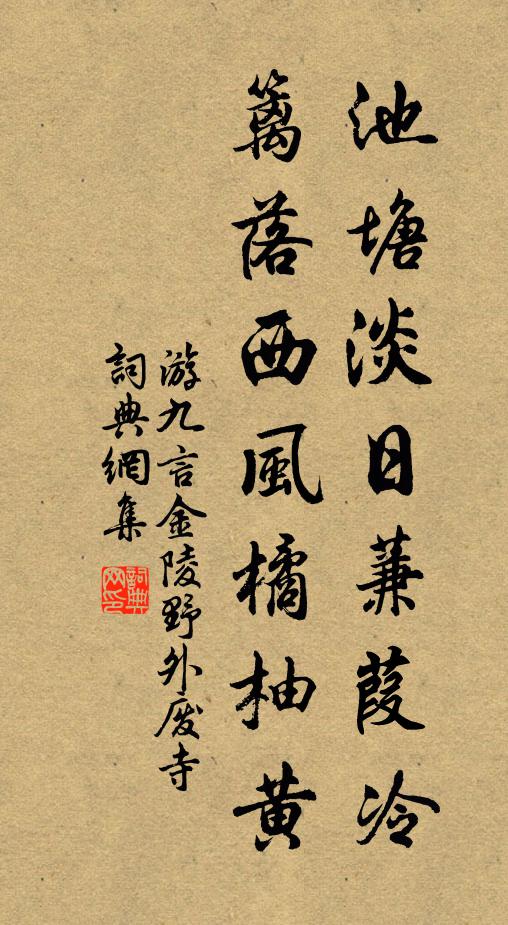 池塘淡日蒹葭冷
籬落西風橘柚黄
游九言金陵野外廢寺
詞典網集
詞典網印